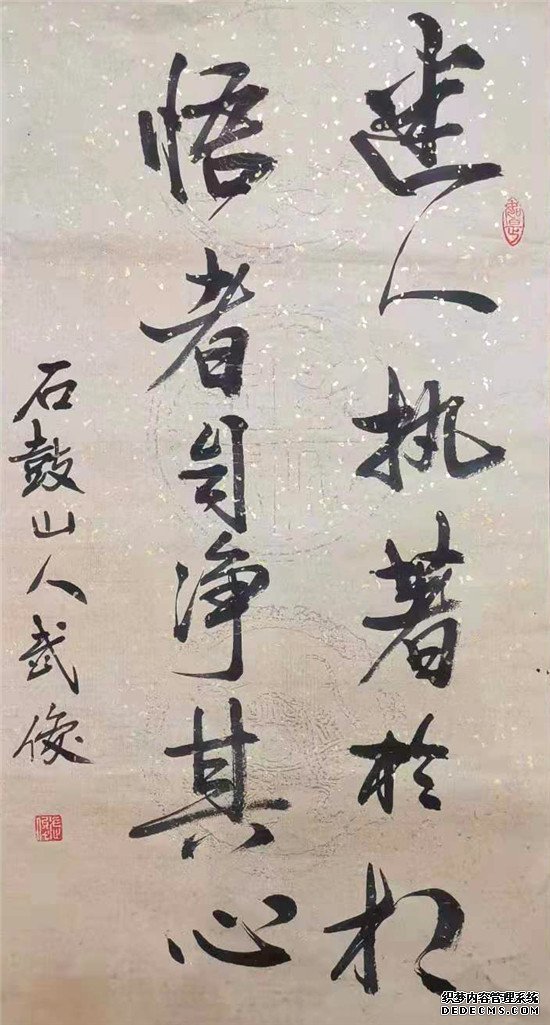 迷人执著於相
悟者自净其心
石鼓山人武俊
织梦内容管理系统
DEDECMS.COM